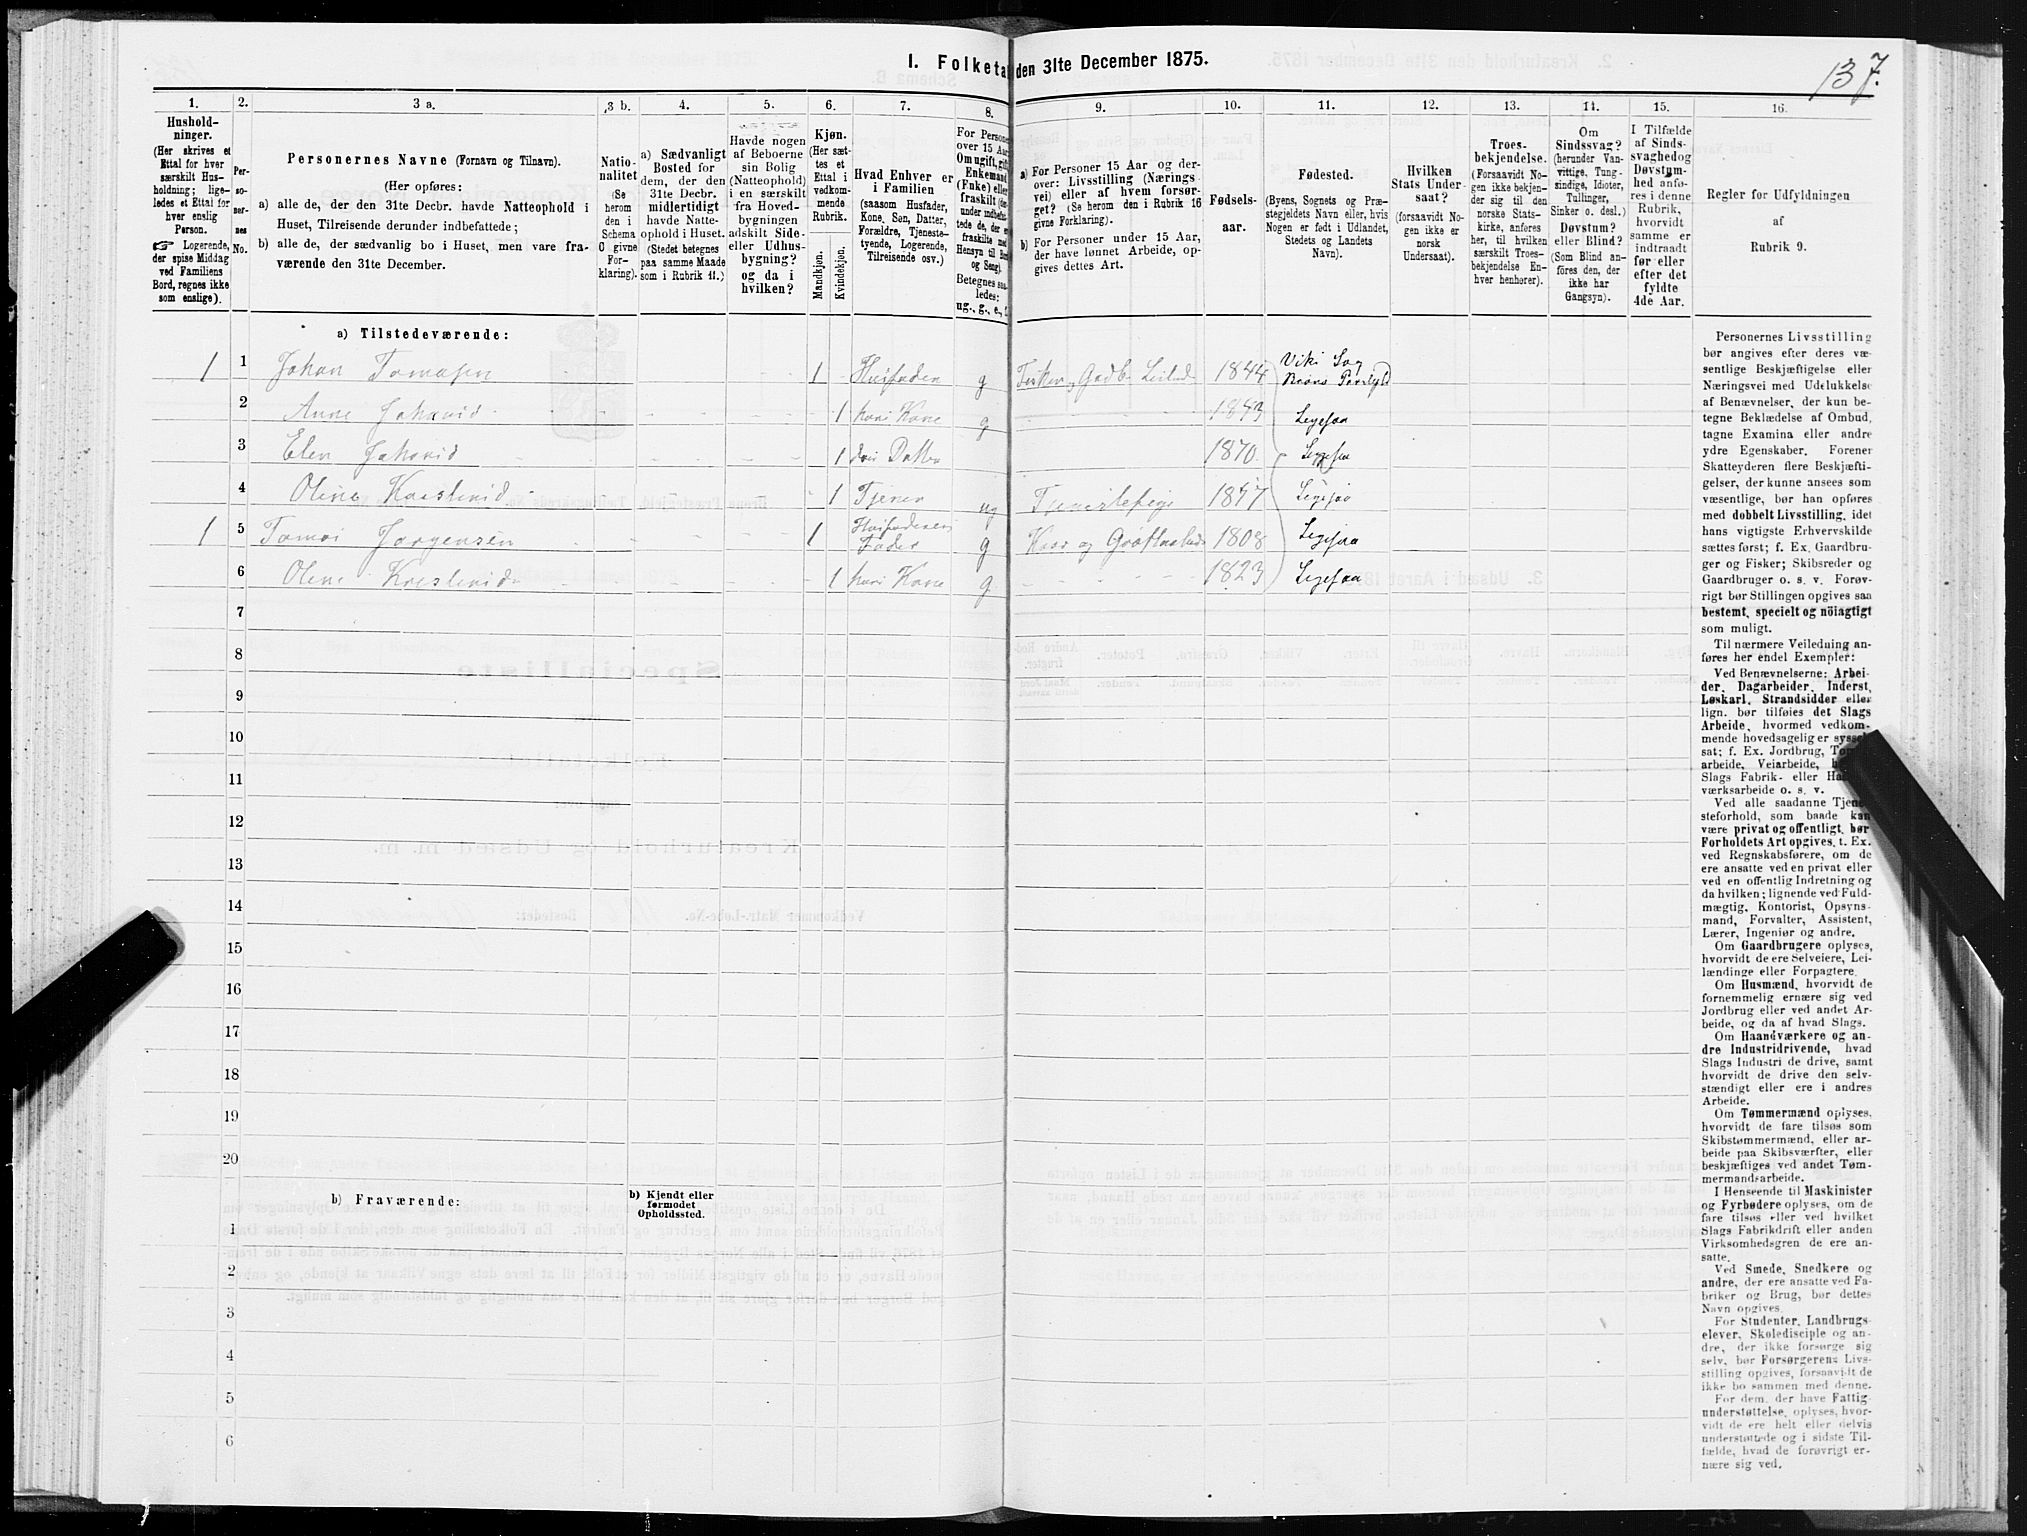 I. Folketa den 31te December 1875.
137.
1.
Hushold-
ninger.
(Her skrives et
Ettal for hver
særskilt Hus-
holdning; lige-
ledes et Ettal for
hver enslig
Person.
☞ Logerende,
der spise Middag
ved Familiens
Bord, regnes ikke
som enslige).
2.
Per-
so-
ner-
nes
No.
3 a.
Personernes Navne (Fornavn og Tilnavn).
(Her opføres:
a) alle de, der den 31te Decbr. havde Natteophold i
Huset, Tilreisende derunder indbefattede;
b) alle de, der sædvanlig bo i Huset, men vare fra-
værende den 31te December.
3 b.
Natio-
nalitet
(Se
herom
den i
Schema
C givne
For-
klaring).
4.
a) Sædvanligt
Bosted for
dem, der den
31te Decbr.
midlertidigt
havde Natte-
ophold i Huset.
(Stedet betegnes
paa samme Maade
som i Rubrik 11.)
5.
Havde nogen
af Beboerne
sin Bolig
(Natteophold)
i en særskilt
fra Hoved-
bygningen
adskilt Side-
eller Udhus-
bygning?
og da i
hvilken?
6.
Kjøn.
(Her sæt-
tes et
Ettal i
vedkom-
mende
Rubrik.
Mandkjøn.
Kvindekjøn.
7.
Hvad Enhver er
i Familien
(saasom Husfader,
Kone, Søn, Datter,
Forældre, Tjeneste-
tyende, Logerende,
Tilreisende osv.)
8.
For Persone
over 15 Aar
Om ugift, gift,
Enkemand
(Enke) eller
fraskilt (der-
under indbefat-
tede de, der e
fraskilte med
Hensyn til Bord
og Seng).
Betegnes saa-
ledes:
ug., g., e., f.
9.
a) For Personer 15 Aar og der-
over: Livsstilling (Nærings
vei) eller af hvem forsør-
get? (Se herom den i Rubrik 16
givne Forklaring).
b) For Personer under 15 Aar,
der have lønnet Arbeide, op-
gives dettes Art.
10.
Fødsels-
aar.
11.
Fødested.
(Byens, Sognets og Præ-
stegjeldets Navn eller, hvis
Nogen er født i Udlandet,
Stedets og Landets
Navn).
12.
Hvilken
Stats Under-
saat?
(forsaavidt No-
gen ikke er
norsk
Undersaat).
13.
Troes-
bekjendelse.
(Forsaavidt No-
gen ikke bekjen-
der sig til den
norske Stats-
kirke, anføres
her, til hvilken
særskilt Troes-
bekjendelse En-
hver henhører).
14.
Om
Sindssvag?
(herunder Van-
vittige, Tung-
sindige, Idioter,
Tullinger,
Sinker o. desl.)
Døvstum?
eller Blind?
(Som Blind an-
føres den, der
ikke har
Gangsyn).
15.
I Tilfælde
af Sinds-
svaghed og
Døvstum-
hed anfø-
res i denne
Rubrik,
hvorvidt
samme er
indtraadt
før eller
efter det
fyldte
4de Aar.
16.
Regler for Udfyldningen
af
Rubrik 9.
a) Tilstedeværende:
1 1 Johan Tomasen 1 Husfader g Fisker og Gadb 1844 Viki Sog
2 Anne Johnsid 1 hans Kone g 1843 Legesaa
3 Elen Johnsid 1 Datter 1870 Legesaa
4 Oline 1 Tjener ug 1847 Legesaa
1 5 Tomas Jorgensen 1 Husfaderens
Fader g Kaar og 1808 Legesaa
6 Olene 1 hans Kone g 1823 Legesaa
7
8
9
10
11
12
13
14
15
16
17
18
19
20
b) Fraværende:
b) Kjendt eller
formodet
Opholdssted.
1
2
3
4
5
6
Personernes Livsstilling
bør angives efter deres væ-
sentlige Beskjæftigelse eller
Næringsvei med Udelukkelse
af Benævnelser, der kun be-
tegne Beklædelse af Ombud,
tagne Examina eller andre
ydre Egenskaber. Forener
Skatteyderen flere Beskjæfti-
gelser, der kunne ansees som
væsentlige, bør han opføres
med dobbelt Livsstilling, idet
hans vigtigste Erhvervskilde
sættes først; f. Ex. Gaardbru-
ger og Fisker; Skibsreder og
Gaardbruger o. s. v. Forøv-
rigt bør Stillingen opgives saa
bestemt, specielt og nöiagtigt
som muligt.
Til nærmere Veiledning an-
føres her endel Exempler:
Ved Benævnelserne: Arbei-
der, Dagarbeider, Inderst,
Løskarl, Strandsidder eller
lign. bør tilføies det Slags
Arbeide, hvormed vedkom-
mende hovedsagelig er syssel-
sat; f. Ex. Jordbrug,
arbeide, Veiarbeide,
Slags Fabrik- eller
værksarbeide o. s. v.
Ved alle saadanne Tjene-
steforhold, som baade kan
være privat og offentligt, bør
Forholdets Art opgives, t. Ex.
ved Regnskabsførere, om de
ere ansatte ved en privat eller
ved en offentlig Indretning og
da hvilken; lignende ved Fuld-
mægtig, Kontorist, Opsyns-
mand, Forvalter, Assistent,
Lærer, Ingeniør og andre.
Om Gaardbrugere oplyses,
hvorvidt de ere Selveiere, Lei-
lændinge eller Forpagtere.
Om Husmænd, hvorvidt de
fornemmelig ernære sig ved
Jordbrug eller ved andet Ar-
beide, og da af hvad Slags.
Om Haandværkere og an-
dre Industridrivende, hvad
Slags Industri de drive, samt
hvorvidt de drive den selv-
stændigt eller ere i andres
Arbeide.
Om Tømmermænd oplyses,
hvorvidt de fare tilsøs som
Skibstømmermænd, eller ar-
beide paa Skibsværfter, eller
beskjæftiges ved andet Tøm-
mermandsarbeide.
I Henseende til Maskinister
og Fyrbødere oplyses, om de
fare tilsøs eller ved hvilket
Slags Fabrikdrift eller anden
Virksomhedsgren de ere an-
satte.
Ved Smede, Snedkere og
andre, der ere ansatte ved Fa-
briker og Brug, bør dettes
Navn opgives.
For Studenter, Landbrugs-
elever, Skoledisciple og an-
dre, der ikke forsørge sig
selv, bør Forsørgerens Livs-
stilling opgives, forsaavidt de
ikke bo sammen med denne.
For dem, der have Fattig-
understøttelse, oplyses, hvor-
vidt de ere helt eller delvis
understøttede og i sidste Til-
fælde, hvad de forøvrigt er-
nære sig ved.